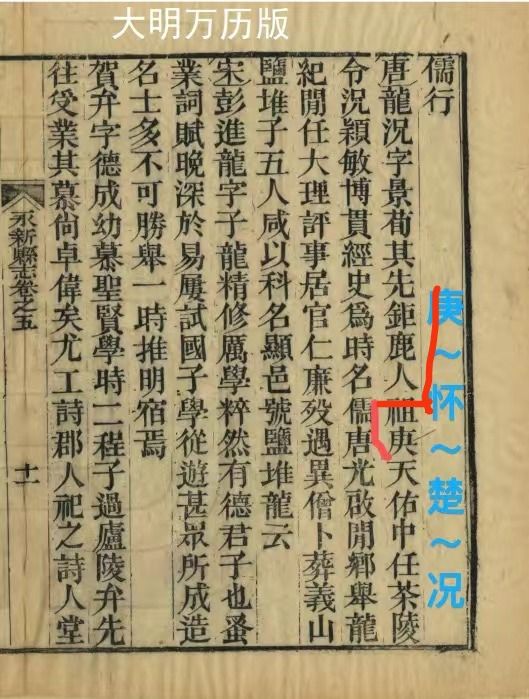 大明万历版
庚～怀～楚～况
儒行
唐龍況字景荀其先鉅鹿人祖庚天佑中任茶陵
令況穎敏博貫經史爲時名儒唐光啟閒鄉舉龍
紀閒任大理評事居官仁廉歿遇異僧卜葬義山
鹽堆子五人咸以科名顯邑號鹽堆龍云
宋彭進龍字子龍精修厲學粹然有德君子也蚤
業詞賦晚深於易屢試國子學從遊甚眾所成造
名士多不可勝舉一時推明宿焉
賀弁字德成幼慕聖賢學時二程子過廬陵弁先
往受業其慕尙卓偉矣尤工詩郡人祀之詩人堂
永新縣志卷之五
十一